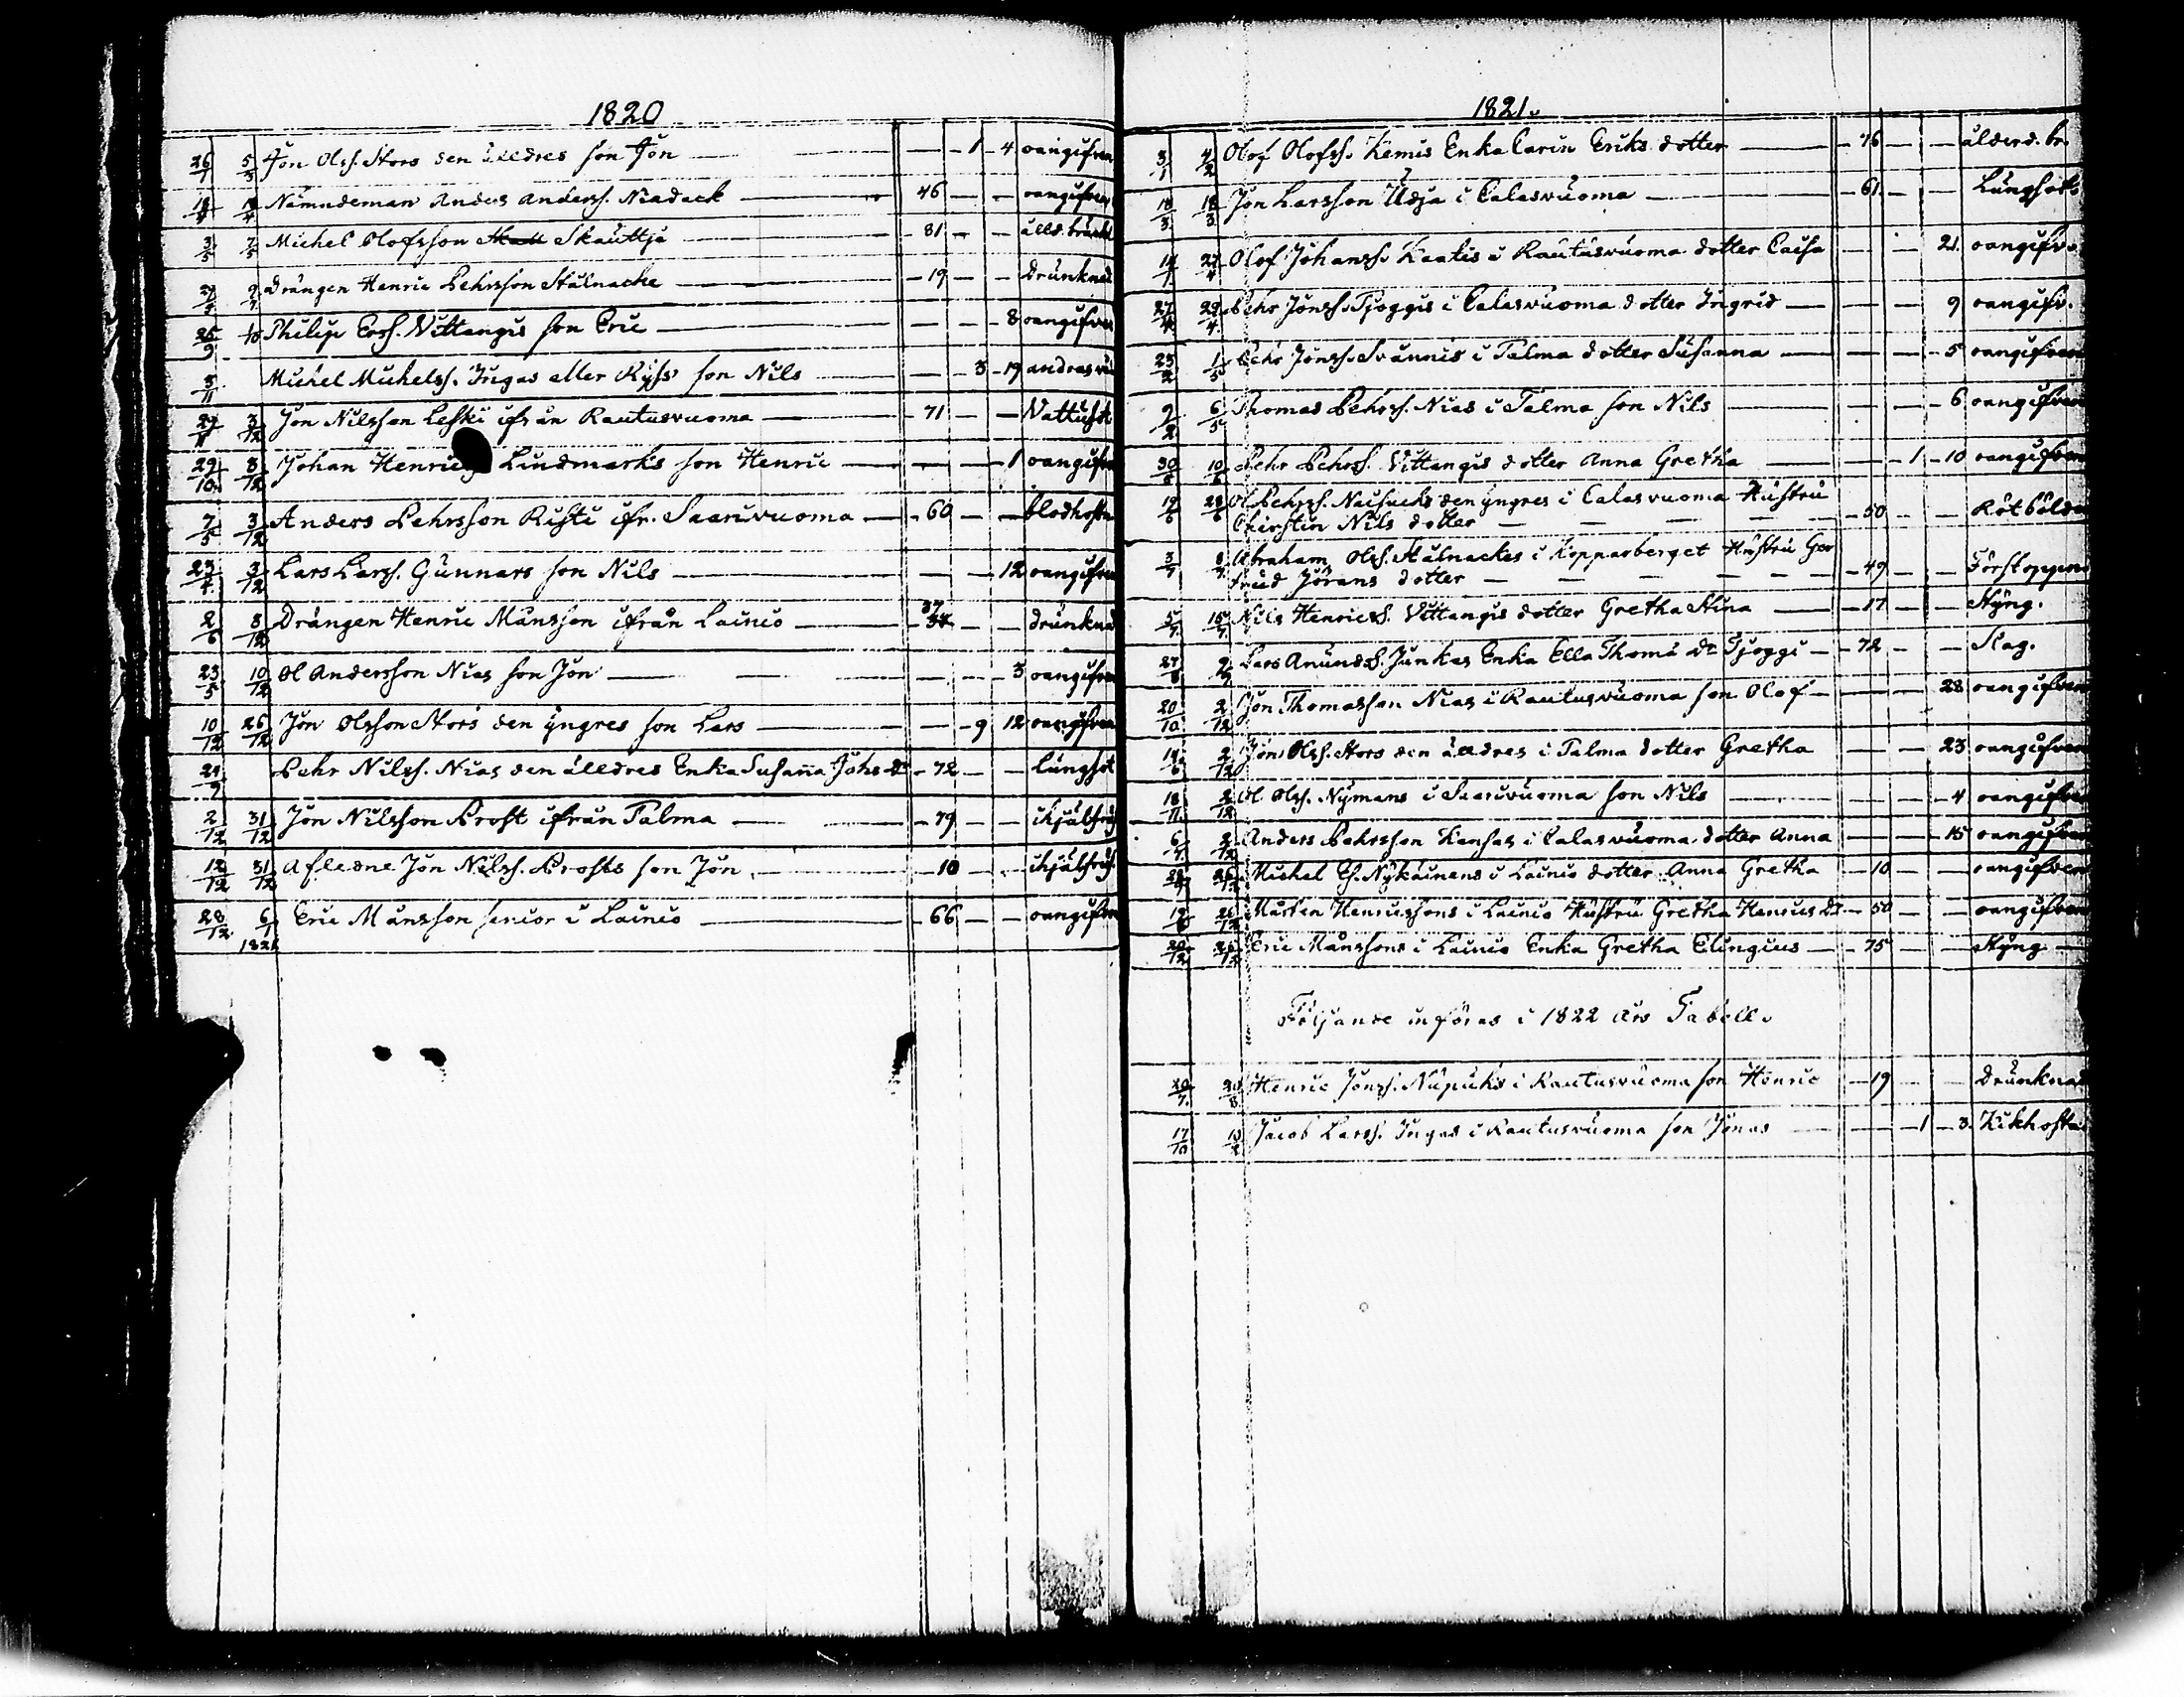 1820
26/1 5/3 Jon Olss. Stors den älldres son Jon — — 1 4 oangifven
Nämndeman Anders Anderss. Niadack — 46 — — oangifven
3/5 7/5 Michel Olofsson Skauttja — 81 — — ålld. bräckl
Drängen Henric Pehrsson Stålnacke — 19 — — Drunknad
25/9 Philip Ersss. Vittangis son Eric — — — 8 oangifven
3/11 Michel Michelss. Ingas eller Ryss son Nils — — 3 19 andras
3/12 Jon Nilsson Leski ifrån Rautusvuoma — 71 — — Vattusot
29/10 8/12 Johan Henrics Lindmarks son Henric — — — 1 oangifven
7/5 3/12 Anders Pehrsson Risti ifr. Saarivuoma — 60 — — blodhosta
23/4 3/12 Lars Larss. Gunnars son Nils — — — 12 oangifven
2/6 8/12 Drängen Henric Månsson ifrån Lainio — 37 — drunknad
23/5 10/12 Ol Andersson Nias son Jon — — — 3 oangifven
10/12 26/12 Jon Olsson Stors den yngres son Lars — — 9 12 oangifven
Pehr Nilss. Nias den älldres Enka Susanna Johs dr — 72 — — lungsot
2/12 31/12 Jon Nilsson Prost ifrån Talma — 79 — — ihjälfrus
12/12 31/12 Afledne Jon Nilss. Prosts son Jon — 10 — — ihjälfrus
28/12 6/1 1821 Eric Månsson senior i Lainio — 66 — — oangifven
1821.
3/1 4/2 Olof Olofss. Kemis Enka Carin Eriks dotter — 76 — — ålderd. br.
18/3 18/3 Jon Larsson Udja i Calasvuoma — 61 — — Lungsot
Olof Johanss. Kaatis i Rautusvuoma dotter Caisa — — 21 oangifv.
27/4 29/4 Pehr Jonss. Tjoggis i Calasvuoma dotter Ingrid — — — 9 oangifv.
23/2 1/5 Pehr Jonss. Svännis i Talma dotter Susanna — — — 5 oangifven
9/2 6/5 Thomas Pehrss. Nias i Talma son Nils — — — 6 oangifven
Pehr Pehrss. Vittangis dotter Anna Gretha — — 1 10 oangifven
Ol Pehrss. Naisacks den yngres i Calasvuoma Hustru
Chirstin Nils dotter — — — 50 — — Rötbölder
3/7 8/7 Abraham Olss. Stålnackes i Kopparberget Hustru Ger
trud Jörans dotter — — — 49 — — Förstoppning
5/7 15/7 Nils Henricss. Vittangis dotter Gretha Stina — 17 — — Styng.
Lars Anundss. Junkas Enka Ella Thoma dr Tjoggi — 72 — — Slag.
20/10 2/12 Jon Thomasson Nias i Rautusvuoma son Olof — — — 28 oangifven
2/12 Jon Olss. Stors den älldres i Talma dotter Gretha — — 23 oangifven
18/11 2/12 Ol Olss. Nymans i Saarivuoma son Nils — — — 4 oangifven
2/12 Anders Pehrsson Kensas i Calasvuoma dotter Anna — — 15 oangifven
26/12 Michel Nykäinens i Lainio dotter Anna Gretha — 10 — — oangifven
26/12 Mårten Henricssons i Lainio Hustru Gretha Henrics dr — 50 — — oangifven
20/12 26/12 Eric Månssons i Lainio Enka Gretha Elingius — 75 — — Styng —
Följande införas i 1822 års Tabell.
Henric Jonss. Nupukis i Rautusvuoma son Henric — 19 — — Drunknad
17/10 Jacob Larss. Ingas i Rautusvuoma son Jonas — — 1 3 Kikhosta